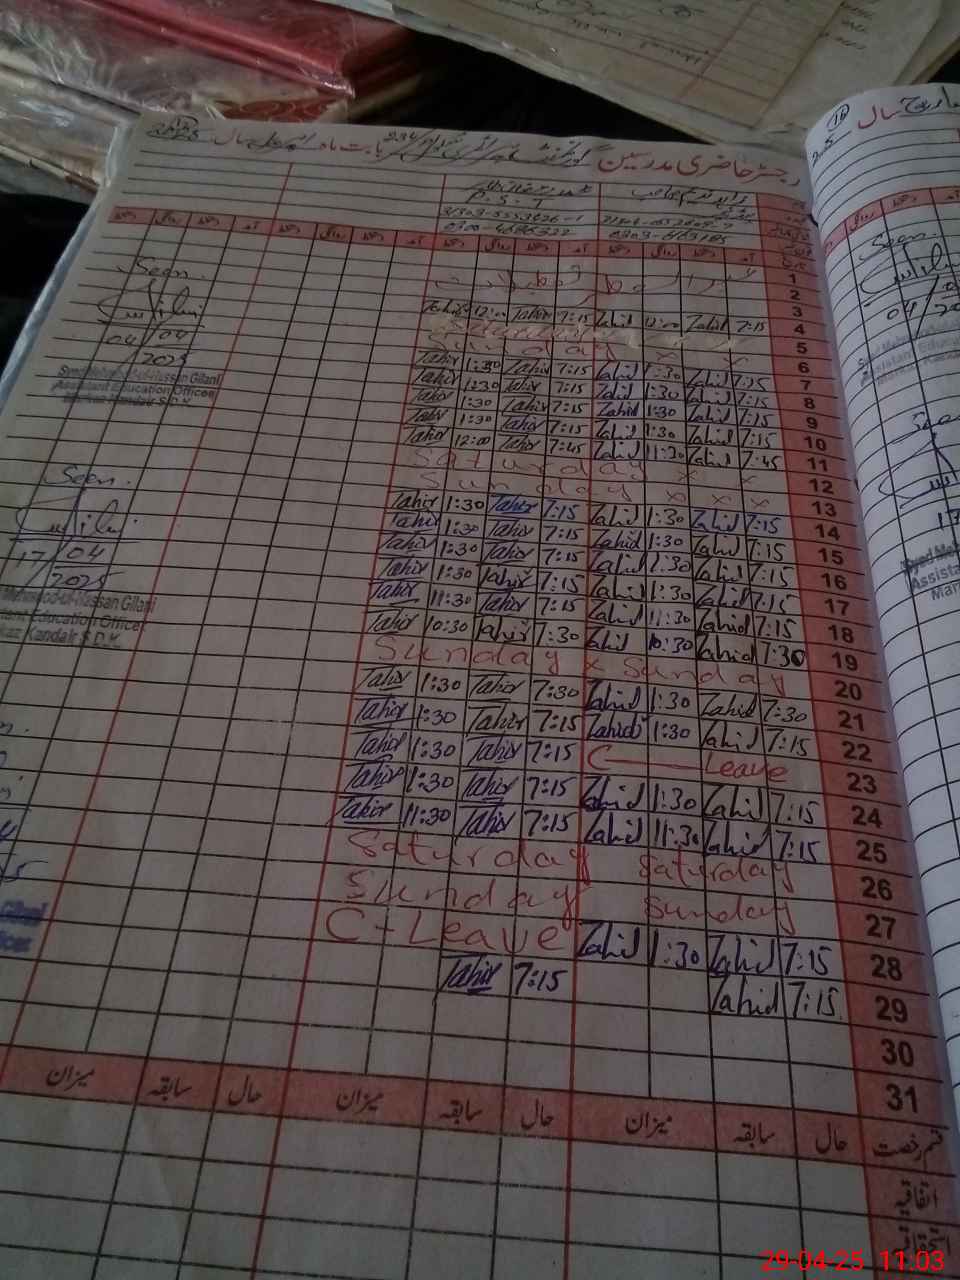 رجسٹر حاضری مدرسین
بابت ماہ
سال
2025
P.S.T
آمد دستخط روانگی دستخط آمد دستخط روانگی دستخط آمد دستخط روانگی دستخط
1
2
3
Tahir 12:00 Tahir 7:15 Zahid 12:00 Zahid 7:15 4
Saturday 5
Sunday x x 6
Tahir 1:30 Tahir 7:15 Zahid 1:30 Zahid 7:15 7
Tahir Tahir 7:15 Zahid 1:30 Zahid 7:15 8
Tahir 1:30 Tahir 7:15 Zahid 1:30 Zahid 7:15 9
Tahir 1:30 Tahir 7:15 Zahid 1:30 Zahid 7:15 10
Tahir 12:00 Tahir 7:45 Zahid 11:30 Zahid 7:45 11
Saturday x x 12
Sunday x x x 13
Tahir 1:30 Tahir 7:15 Zahid 1:30 Zahid 7:15 14
Tahir 1:30 Tahir 7:15 Zahid 1:30 Zahid 7:15 15
Tahir 1:30 Tahir 7:15 Zahid 1:30 Zahid 7:15 16
Tahir 1:30 Tahir 7:15 Zahid 1:30 Zahid 7:15 17
Tahir 11:30 Tahir 7:15 Zahid 11:30 Zahid 7:15 18
Tahir 10:30 Tahir 7:30 Zahid 10:30 Zahid 7:30 19
Sunday x Sunday 20
Tahir 1:30 Tahir 7:30 Zahid 1:30 Zahid 7:30 21
Tahir 1:30 Tahir 7:15 Zahid 1:30 Zahid 7:15 22
Tahir 1:30 Tahir 7:15 C Leave 23
Tahir 1:30 Tahir 7:15 Zahid 1:30 Zahid 7:15 24
Tahir 11:30 Tahir 7:15 Zahid 11:30 Zahid 7:15 25
Saturday Saturday 26
Sunday Sunday 27
C-Leave Zahid 1:30 Zahid 7:15 28
Tahir 7:15 Zahid 7:15 29
30
31
قسم رخصت حال سابقہ میزان حال سابقہ میزان حال سابقہ میزان
اتفاقیہ
Seen.
04/04
2025
Syed Mehmood-ul-Hassan Gilani
Assistant Education Officer
Markaz Kandair S.D.K
Seen.
17/04
2025
Mehmood-ul-Hassan Gilani
tant Education Officer
kaz Kandair S.D.K
سال
Seen
04
Syed Meh
Assista
Mar
29-04-25 11:03